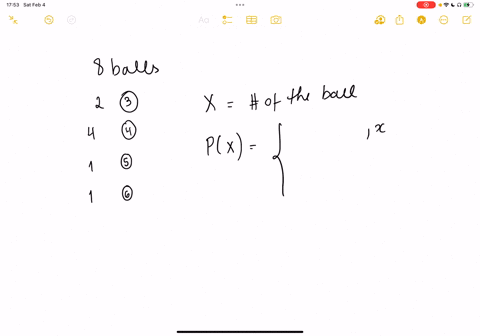 17:53 Sat Feb 4
Aa
8 balls
2 ③
4 ④
1 ⑤
1 ⑥
X = # of the ball
P(x) = {
, x